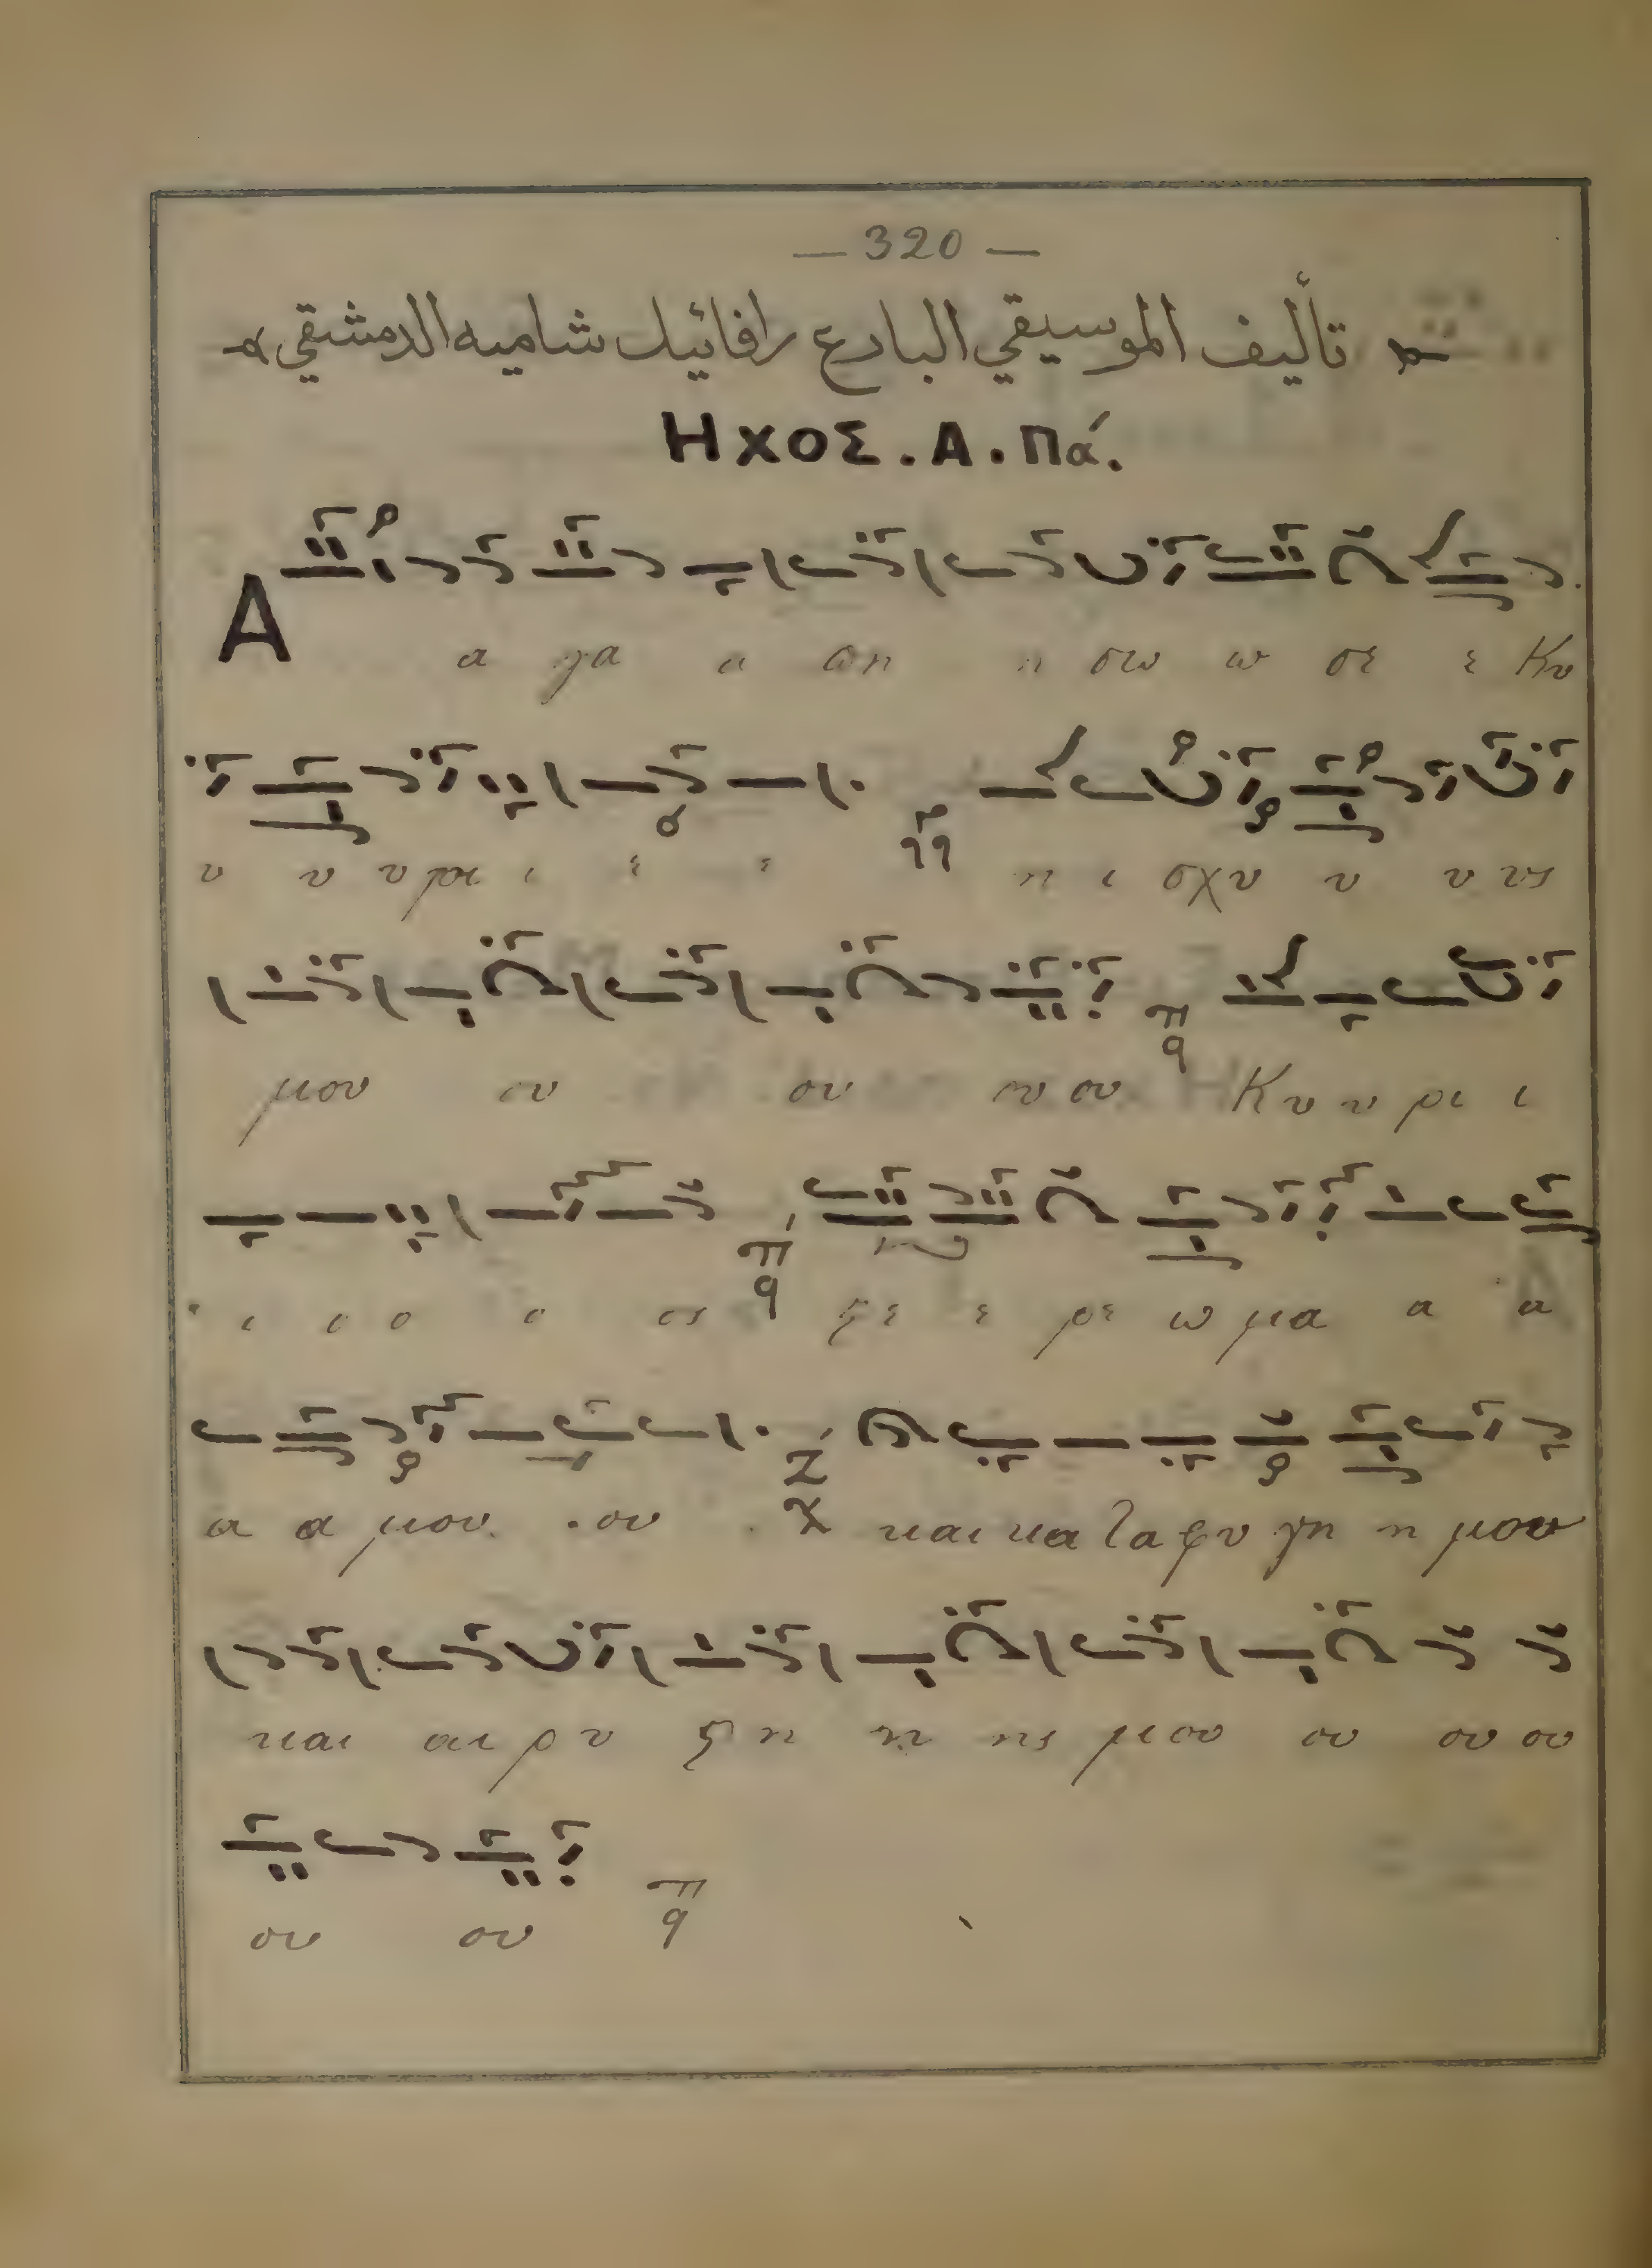 — 320 —
تأليف الموسيقي البارع رافائيل شاميه الدمشقي
Ηχος. Α. Πά.
Α α γα α πη η σω ω σε ε Κυ
υ υ υ ρι ι ε ε η ι σχυ υ υ υς
μου ου ου ου ου Κυ υ ρι ι
ι ο ο ο ος ςε ε ρε ω μα α α
α α μου ου και κα τα φυ γη η μου
και αι ρυ ςη η ης μου ου ου ου
ου ου